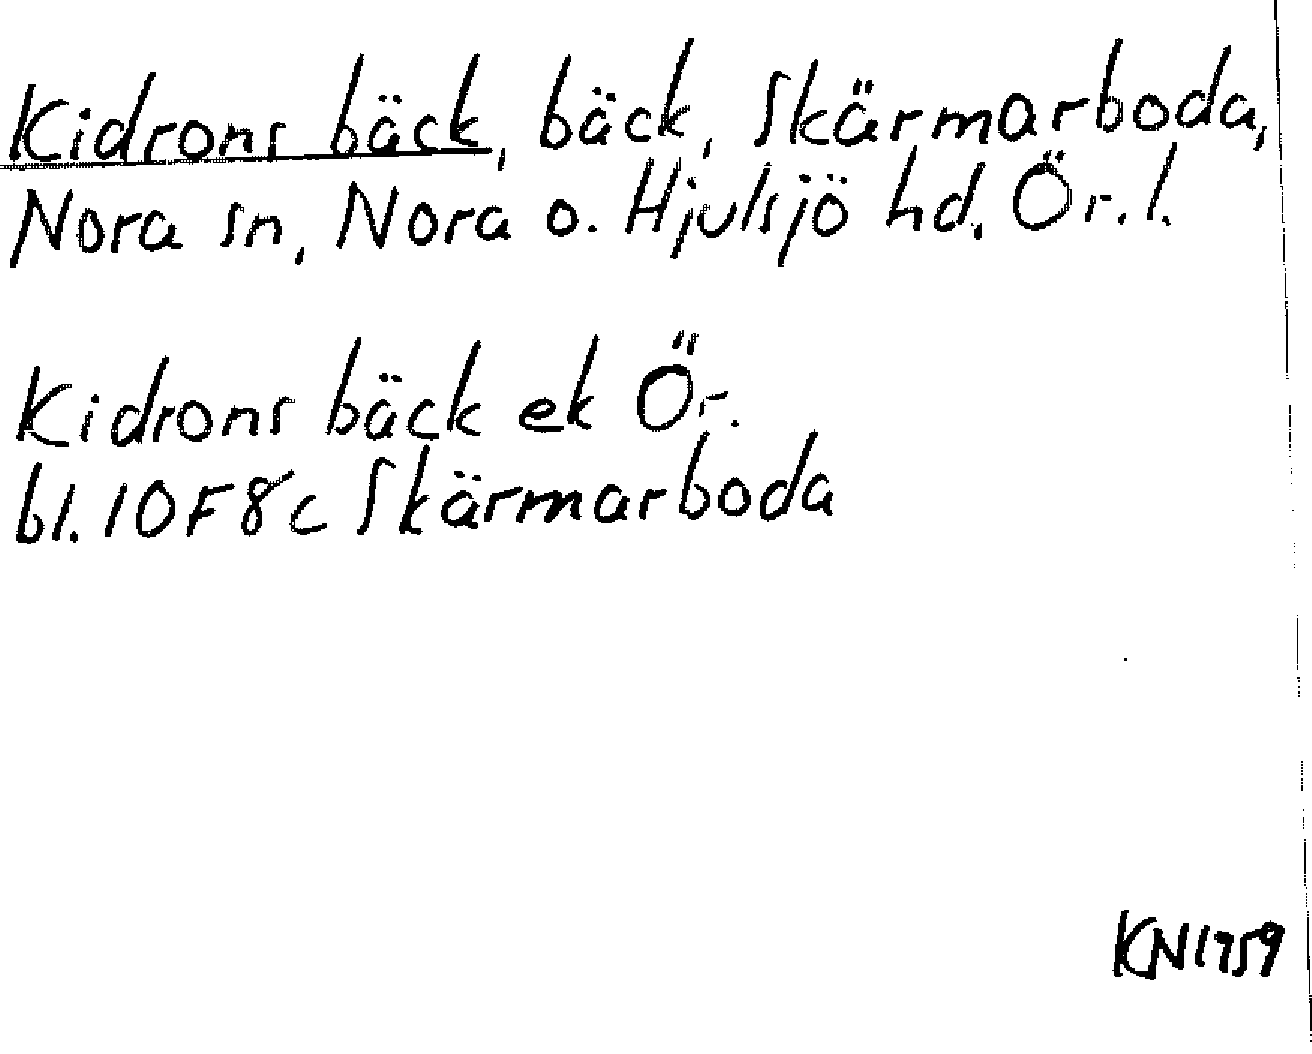 Kidrons bäck, bäck, Skärmarboda,
Nora sn, Nora o. Hjulsjö hd. Ör. l.
Kidrons bäck ek Ör.
bl. 10F8c Skärmarboda
KN1959